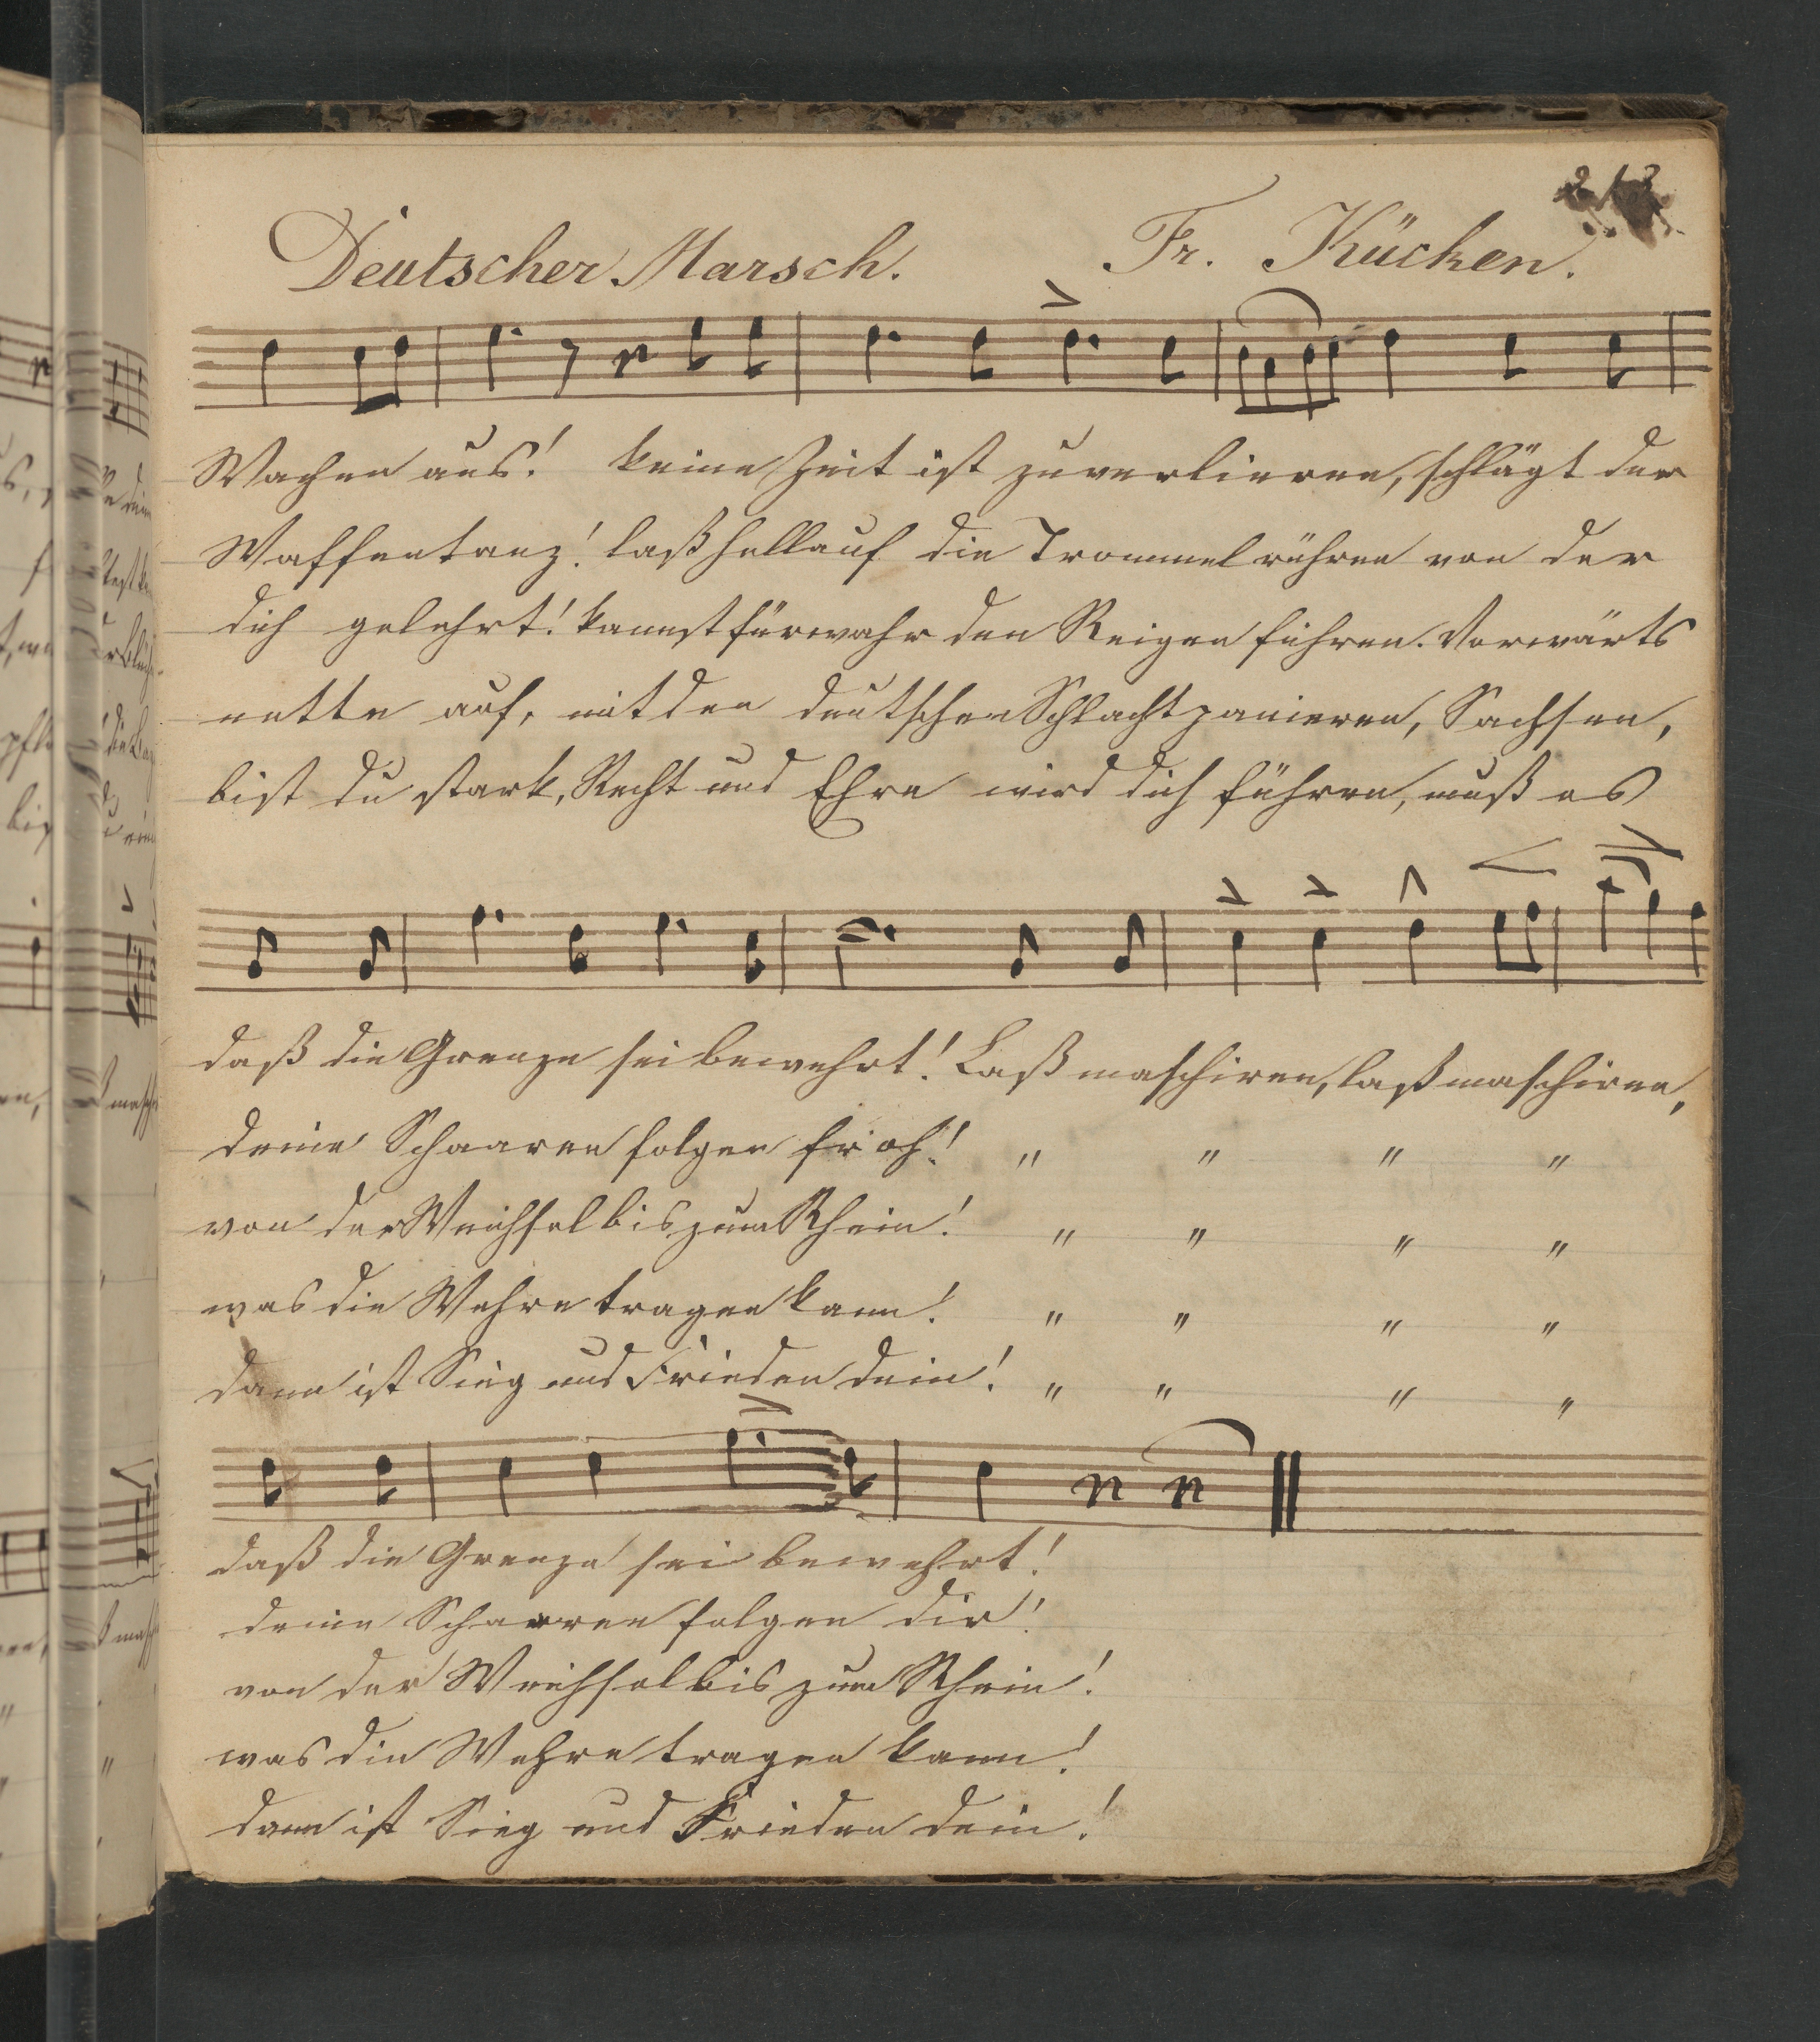 213
Deutscher Marsch. Fr. Kücken.
Wachen aus! keine Zeit ist zu verlieren, schlägt der
Waffentanz! laß hellauf die Trommel rühren von der
dich gelehrt! kannst fürwahr den Reigen führen. Vorwärts
nette auf, mit den deutschen Schlachtpanieren, Sachsen,
bist du stark, Recht und Ehre wird dich führen, muß es
daß die Grenze sei bewehrt! Laß maschiren, laß maschiren,
deine Schaaren folgen froh! " " " "
von der Weichsel bis zum Rhein! " " " "
was die Wehre tragen kann! " " " "
dann ist Sieg und Frieden dein! " " " "
daß die Grenze sei bewehrt!
deine Schaaren folgen dir!
von der Weichsel bis zum Rhein!
was die Wehre tragen kann!
dann ist Sieg und Frieden dein!